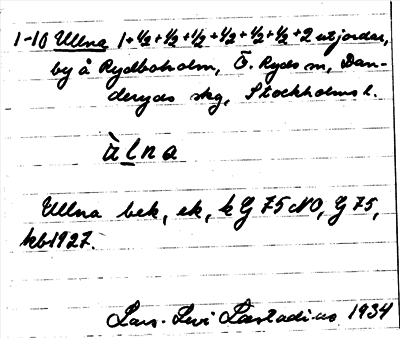 1-10 Ullna 1+1/2+1/2+1/2+1/2+1/2+1/2+2 utjordar,
by å Rydboholm, Ö. Ryds sn, Dan-
deryds skg, Stockholms l.
ùlna
Ullna bek, ek, k G 75 NO, G 75,
hb1927.
Lars-Levi Læstadius 1934